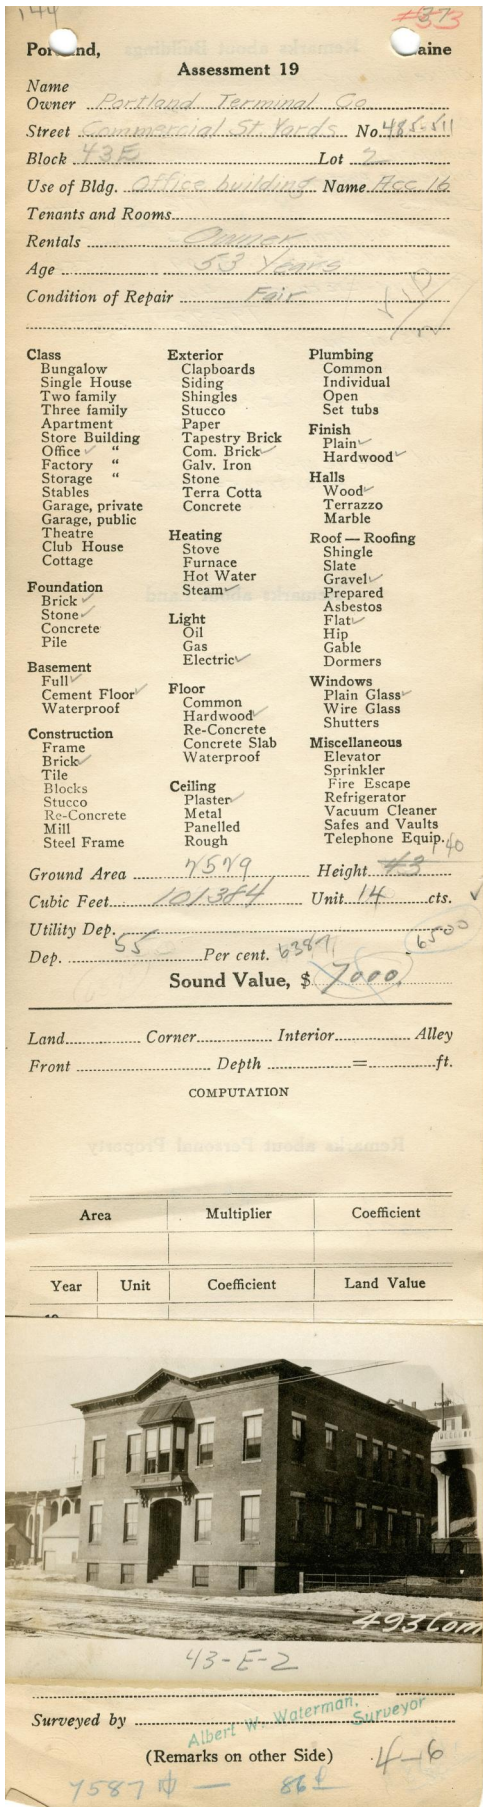 144
#33
37
Portland, Maine
Assessment 19
Name
Owner Portland Terminal Co
Street Commercial St. Yards No. 485-511
Block 43E Lot 2
Use of Bldg. Office building Name Acc 16
Tenants and Rooms
Rentals Owner
Age 53 Years
Condition of Repair Fair
Class
Bungalow
Single House
Two family
Three family
Apartment
Store Building
Office ✓ "
Factory "
Storage "
Stables
Garage, private
Garage, public
Theatre
Club House
Cottage
Foundation
Brick ✓
Stone ✓
Concrete
Pile
Basement
Full ✓
Cement Floor ✓
Waterproof
Construction
Frame
Brick ✓
Tile
Blocks
Stucco
Re-Concrete
Mill
Steel Frame
Exterior
Clapboards
Siding
Shingles
Stucco
Paper
Tapestry Brick
Com. Brick ✓
Galv. Iron
Stone
Terra Cotta
Concrete
Heating
Stove
Furnace
Hot Water
Steam ✓
Light
Oil
Gas
Electric ✓
Floor
Common
Hardwood ✓
Re-Concrete
Concrete Slab
Waterproof
Ceiling
Plaster ✓
Metal
Panelled
Rough
Plumbing
Common
Individual
Open
Set tubs
Finish
Plain ✓
Hardwood ✓
Halls
Wood ✓
Terrazzo
Marble
Roof — Roofing
Shingle
Slate
Gravel ✓
Prepared
Asbestos
Flat ✓
Hip
Gable
Dormers
Windows
Plain Glass ✓
Wire Glass
Shutters
Miscellaneous
Elevator
Sprinkler
Fire Escape
Refrigerator
Vacuum Cleaner
Safes and Vaults
Telephone Equip.
140
Ground Area Height #3
Cubic Feet 101384 Unit 14 cts. ✓
Utility Dep. 6500
Dep. 55 Per cent. 6387
Sound Value, $ 7000
Land Corner Interior Alley
Front Depth = ft.
COMPUTATION
Area Multiplier Coefficient
Year Unit Coefficient Land Value
493 Com
43-E-2
Surveyed by Albert W. Waterman, Surveyor
(Remarks on other Side) 4-6
7587 — 86